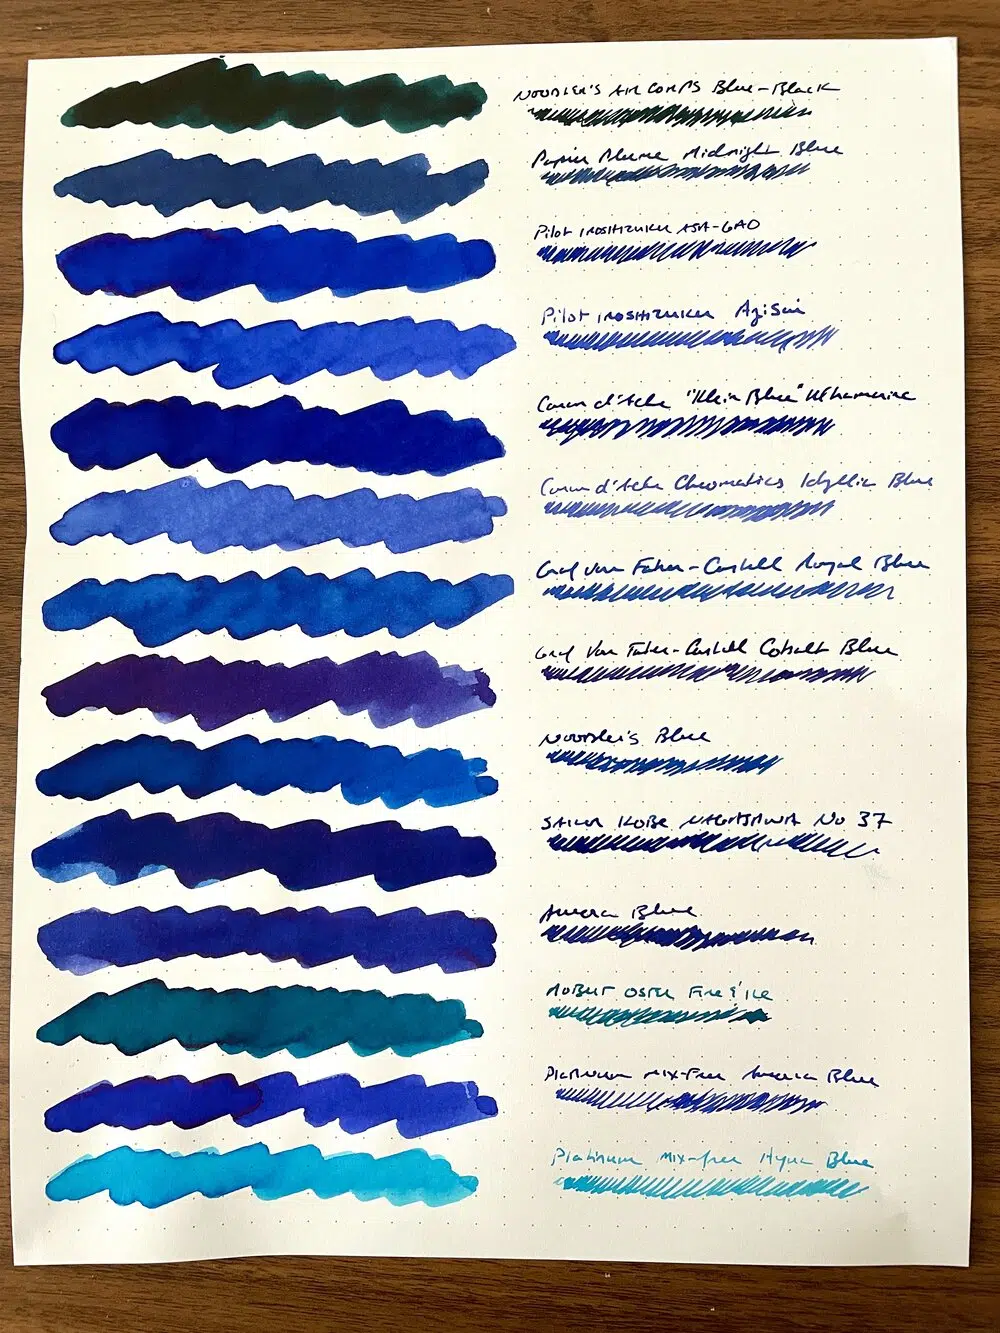 NOODLER'S AIR CORPS Blue-Black
Papier Plume Midnight Blue
Pilot IROSHIZUKU ASA-GAO
Pilot IROSHIZUKU Ajisai
Caran d'Ache "Klein Blue" Ultramarine
Caran d'Ache Chromatics Idyllic Blue
Graf von Faber-Castell Royal Blue
Graf Von Faber-Castell Cobalt Blue
Noodler's Blue
SAILOR KOBE NAGASAWA No 37
Aurora Blue
ROBERT OSTER Fire & Ice
Platinum MIX-Free Aurora Blue
Platinum Mix-free Aqua Blue